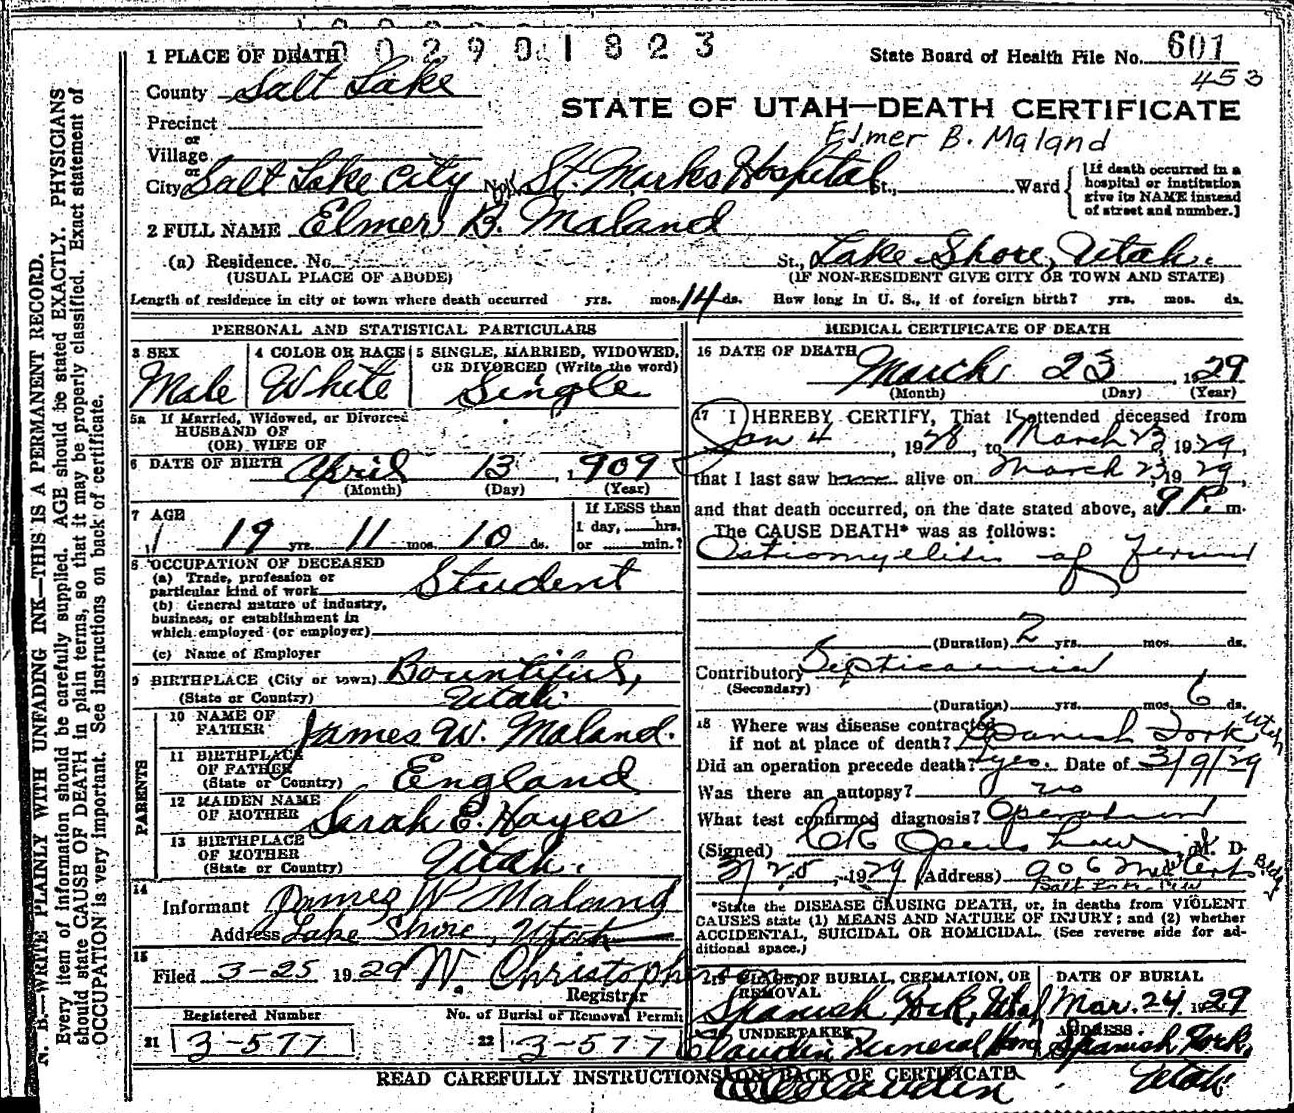 0 0 2 9 0 1 8 2 3
1 PLACE OF DEATH
State Board of Health File No. 601
453
County Salt Lake
STATE OF UTAH—DEATH CERTIFICATE
Precinct
Elmer B. Maland
or
Village
or
City Salt Lake City No. St. Marks Hospital St., Ward
[If death occurred in a
hospital or institution
give its NAME instead
of street and number.]
2 FULL NAME Elmer B. Maland
(a) Residence. No. St., Lake Shore, Utah.
(USUAL PLACE OF ABODE) (IF NON-RESIDENT GIVE CITY OR TOWN AND STATE)
Length of residence in city or town where death occurred yrs. mos. 14 ds. How long in U. S., if of foreign birth? yrs. mos. ds.
PERSONAL AND STATISTICAL PARTICULARS
3 SEX
Male
4 COLOR OR RACE
White
5 SINGLE, MARRIED, WIDOWED,
OR DIVORCED (Write the word)
Single
5a If Married, Widowed, or Divorced
HUSBAND OF
(OR) WIFE OF
6 DATE OF BIRTH April 13, 1909
(Month) (Day) (Year)
7 AGE
19 yrs. 11 mos. 10 ds.
If LESS than
1 day, hrs.
or min.?
8 OCCUPATION OF DECEASED
(a) Trade, profession or
particular kind of work Student
(b) General nature of industry,
business, or establishment in
which employed (or employer)
(c) Name of Employer
9 BIRTHPLACE (City or town) Bountiful,
(State or Country) Utah
PARENTS
10 NAME OF
FATHER James W. Maland.
11 BIRTHPLACE
OF FATHER
(State or Country) England
12 MAIDEN NAME
OF MOTHER Sarah E. Hayes
13 BIRTHPLACE
OF MOTHER
(State or Country) Utah.
14
Informant James W Maland
Address Lake Shore, Utah
15
Filed 3-25 1929 W. Christopherson
Registrar
Registered Number No. of Burial or Removal Permit
21 3-577 22 3-577
MEDICAL CERTIFICATE OF DEATH
16 DATE OF DEATH
March 23, 1929
(Month) (Day) (Year)
17 I HEREBY CERTIFY, That I attended deceased from
Jan 4, 1928, to March 23, 1929,
that I last saw h alive on March 23, 1929
and that death occurred, on the date stated above, at 9 P. m.
The CAUSE DEATH* was as follows:
Ostiomyelitis of
(Duration) 2 yrs. mos. ds.
Contributory Septicaemia
(Secondary)
(Duration) yrs. mos. 6 ds.
18 Where was disease contracted
if not at place of death? Spanish Fork Utah
Did an operation precede death? yes. Date of 3/9/29
Was there an autopsy? no
What test confirmed diagnosis? Operation
(Signed) M. D.
3/25, 1929 (Address) 906 Bldg
*State the DISEASE CAUSING DEATH, or, in deaths from VIOLENT
CAUSES state (1) MEANS AND NATURE OF INJURY; and (2) whether
ACCIDENTAL, SUICIDAL OR HOMICIDAL. (See reverse side for ad-
ditional space.)
19 PLACE OF BURIAL, CREMATION, OR
REMOVAL
Spanish Fork, Utah
DATE OF BURIAL
Mar. 24 1929
20 UNDERTAKER
Claudin Funeral Home
ADDRESS
Spanish Fork,
Utah
READ CAREFULLY INSTRUCTIONS ON BACK OF CERTIFICATE
N. B.—WRITE PLAINLY WITH UNFADING INK—THIS IS A PERMANENT RECORD.
Every item of information should be carefully supplied. AGE should be stated EXACTLY. PHYSICIANS
should state CAUSE OF DEATH in plain terms, so that it may be properly classified. Exact statement of
OCCUPATION is very important. See instructions on back of certificate.